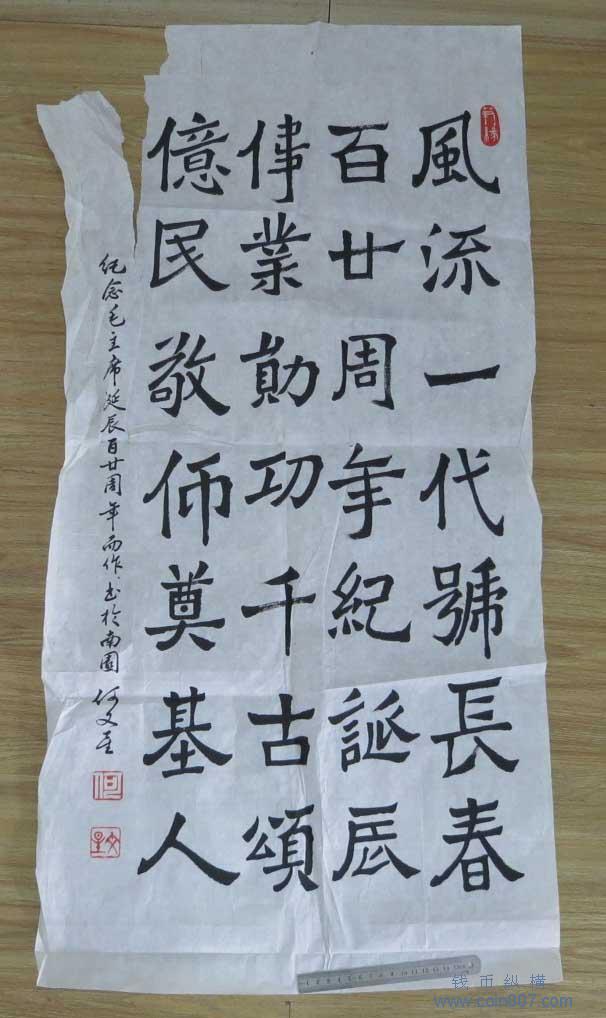 風流一代號長春
百廿周年紀誕辰
偉業勛功千古頌
億民敬仰奠基人
纪念毛主席诞辰百廿周年而作.书於南園 何文星
何
文星
钱币纵横
www.coin007.com